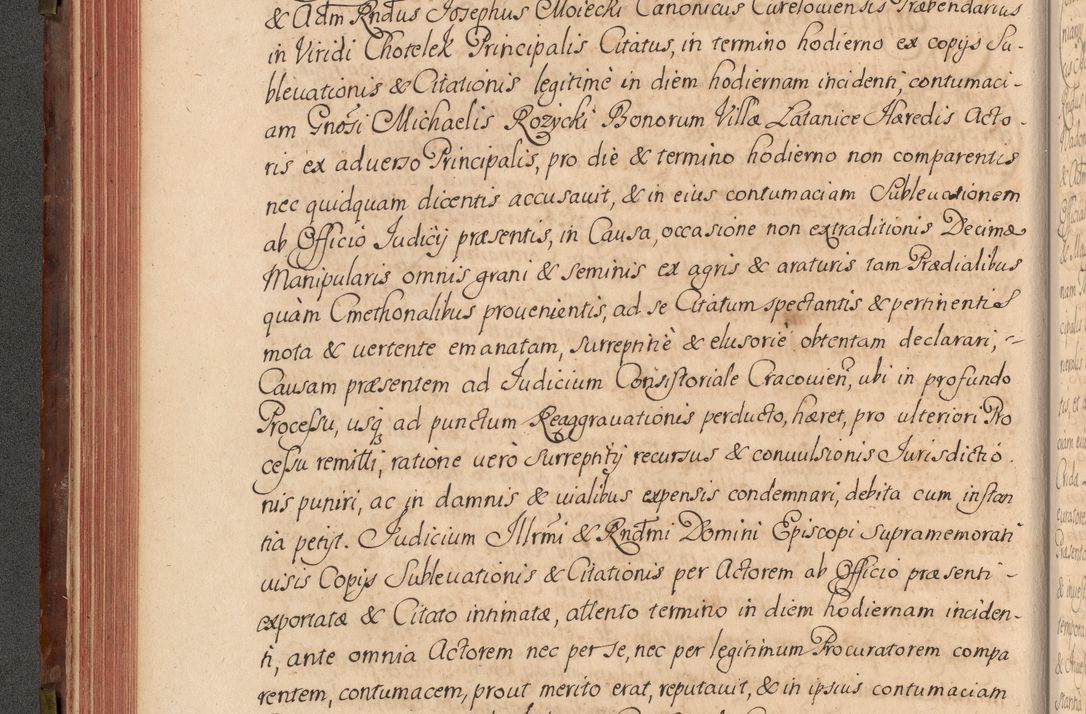 & Adm Rndus Josephus Moiecki Canonicus Curelouiensis Præbendarius
in Viridi Chotelek Principalis Citatus, in termino hodierno ex copijs Su-
bleuationis & Citationis legitimè in diem hodiernam incidenti, contumaci-
am Gnosi Michaelis Rozycki Bonorum Villæ Latanice Hæredis Acto-
ris ex aduerso Principalis, pro die & termino hodierno non comparentis
nec quidquam dicentis accusauit, & in eius contumaciam Subleuationem
ab Officio Judicij præsentis, in Causa, occasione non extraditionis Decimæ
Manipularis omnis grani & seminis ex agris & araturis tam Prædialibus
quàm Cmethonalibus prouenientis, ad se Citatum spectantis & pertinentis
mota & uertente emanatam, surreptitiè & elusoriè obtentam declarari,
Causam præsentem ad Judicium Consistoriale Cracouien, ubi in profundo
Processu, usq ad punctum Reaggrauationis perducto, hæret, pro ulteriori Pro
cessu remitti, ratione uerò surreptitij recursus & conuulsionis Jurisdictio
nis puniri, ac in damnis & uialibus expensis condemnari, debita cum instan
tia petijt. Judicium Illrmi & Rndmi Domini Episcopi supramemorati
uisis Copijs Subleuationis & Citationis per Actorem ab Officio præsenti
exportatæ & Citato intimatæ, attento termino in diem hodiernam inciden-
ti, ante omnia Actorem nec per se, nec per legitimum Procuratorem compa
rentem, contumacem, prout merito erat, reputauit, & in ipsius contumaciam